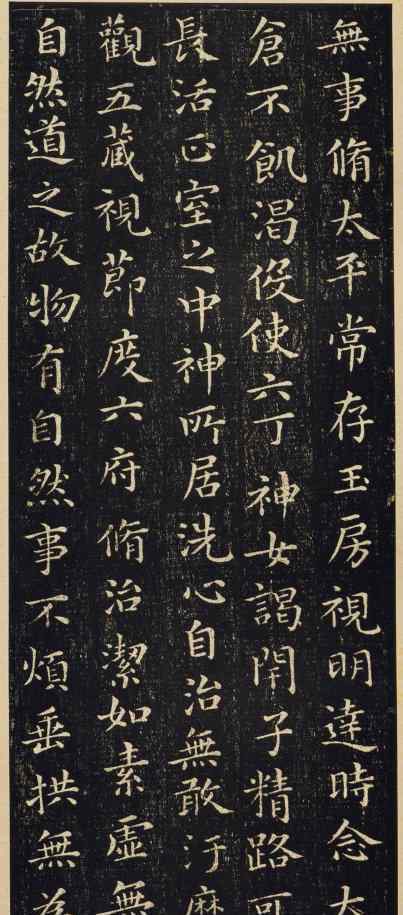 無事脩太平常存玉房視明達時念大
倉不飢渴役使六丁神女謁閇子精路可
長活正室之中神所居洗心自治無敢汙
觀五藏視節度六府脩治潔如素虛無
自然道之故物有自然事不煩垂拱無為